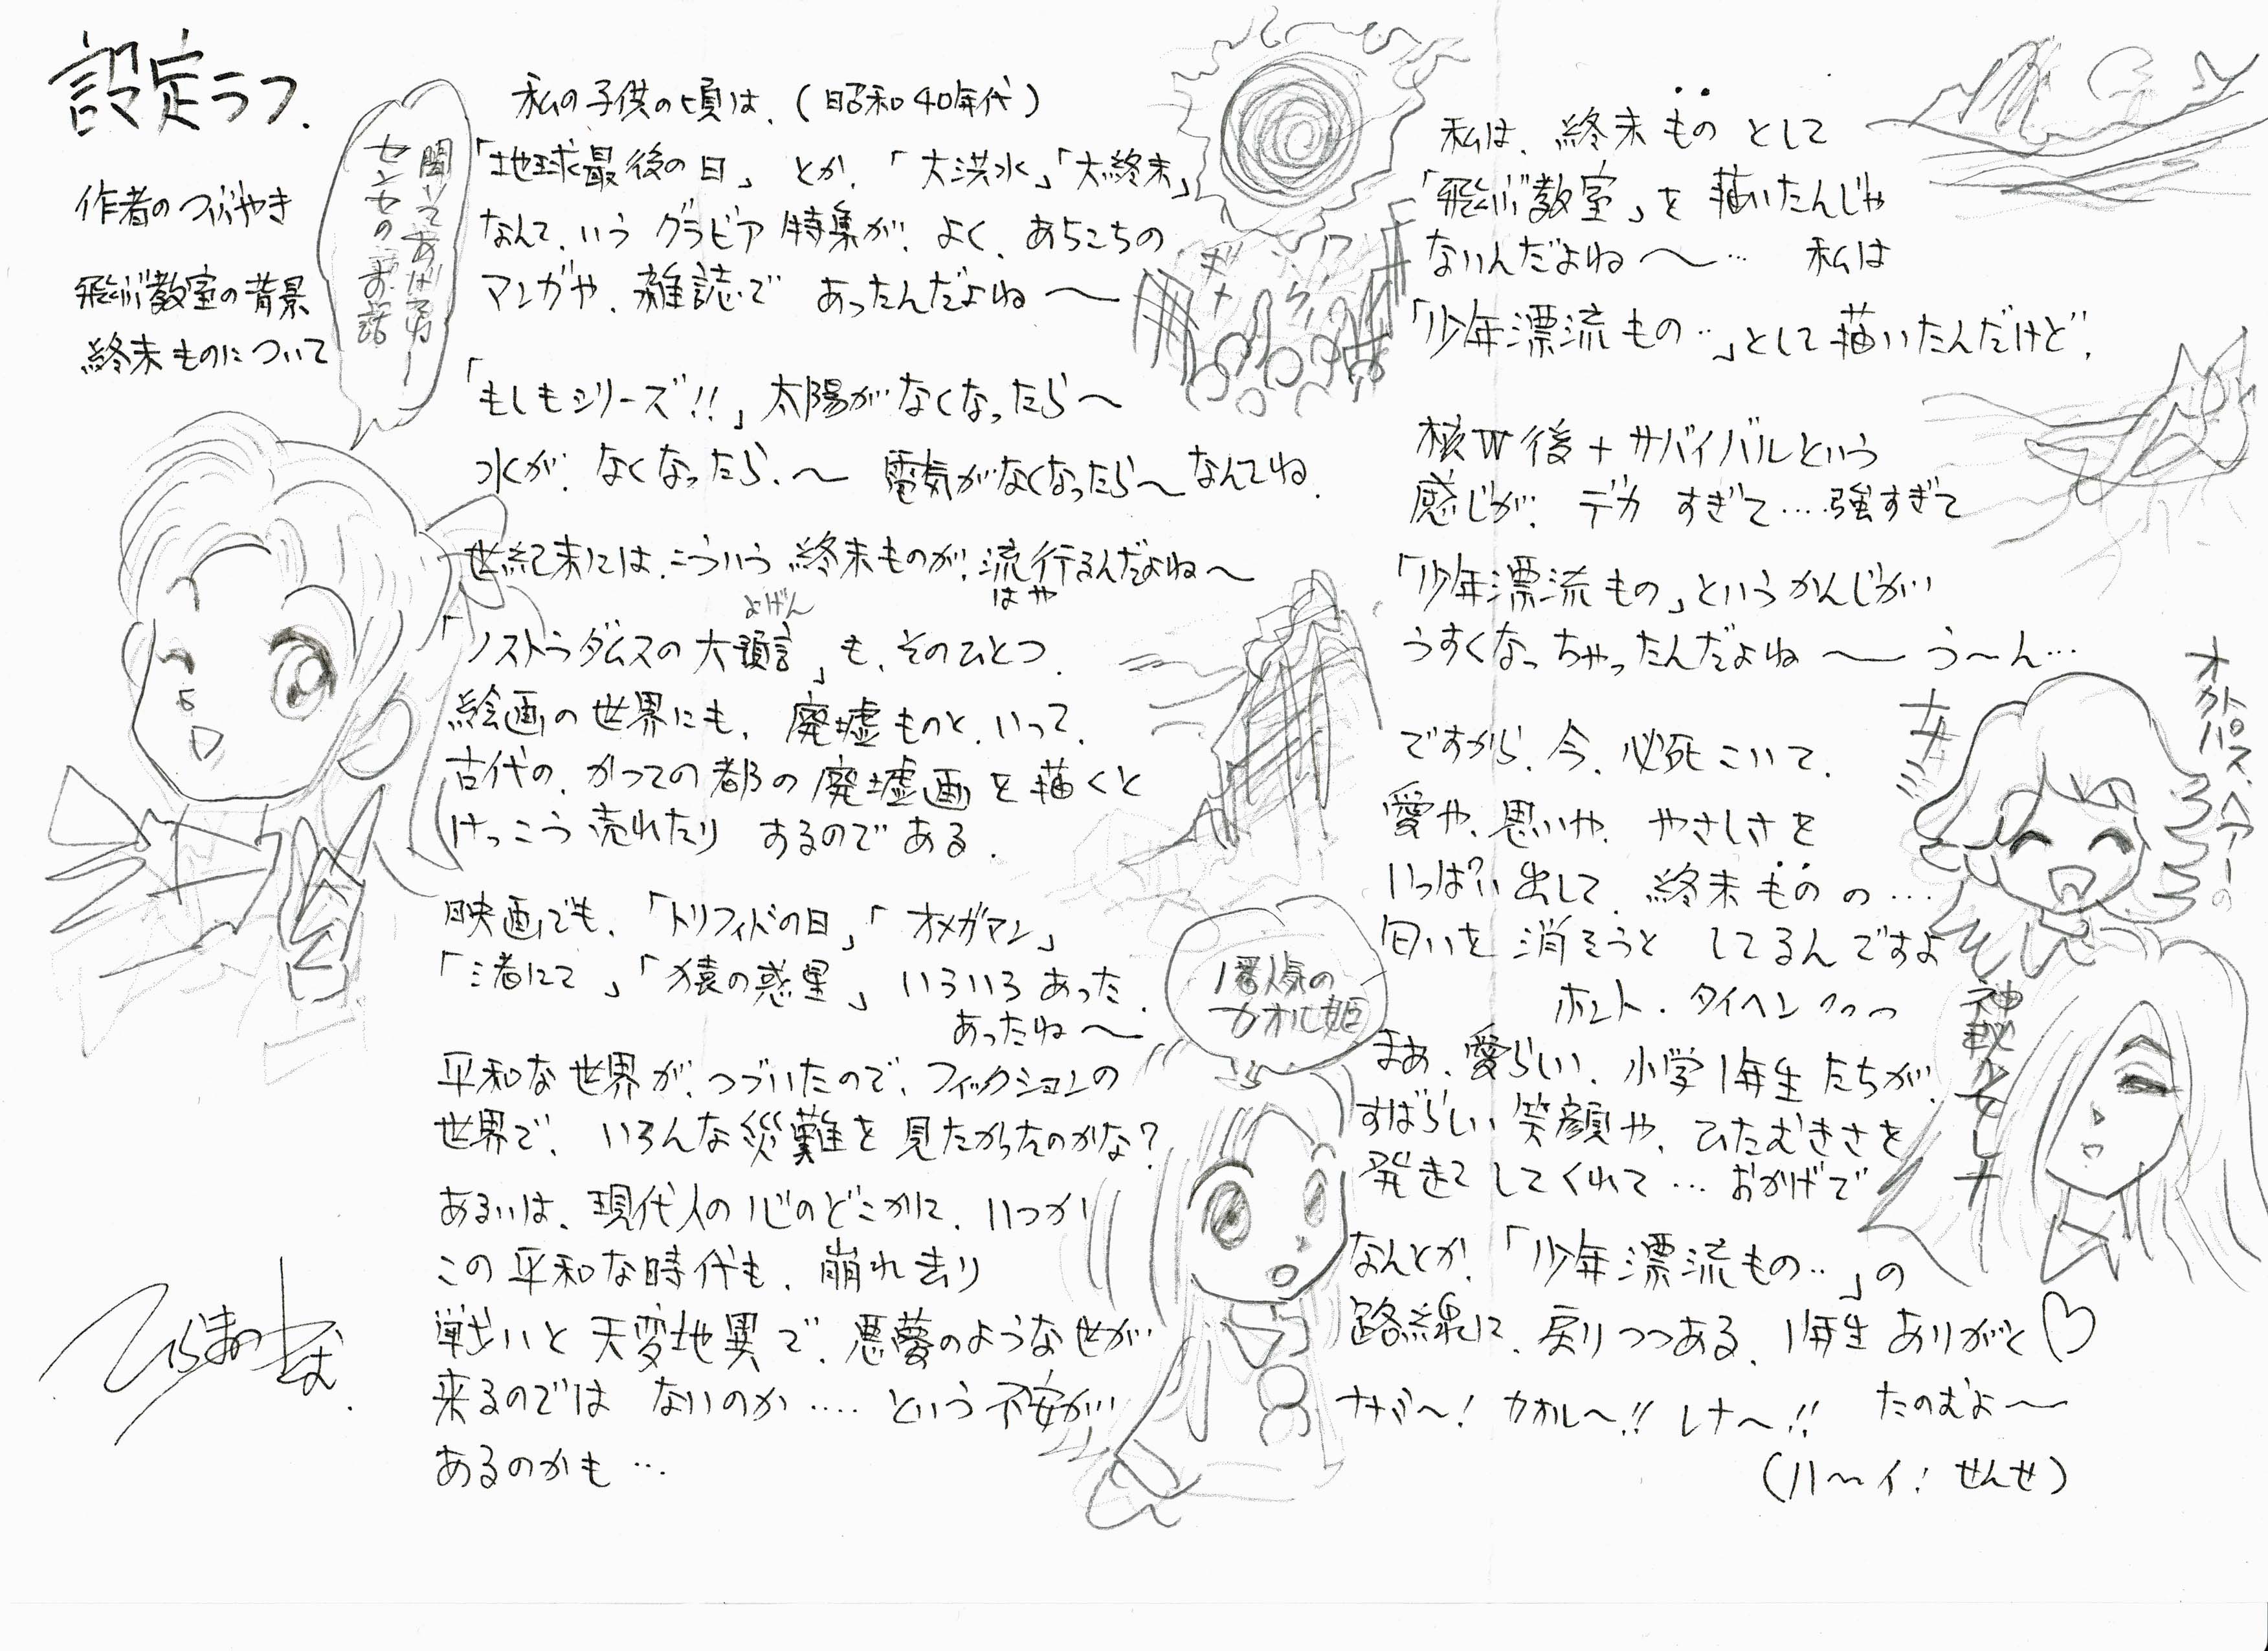 設定ラフ.
作者のつぶやき
飛ぶ教室の背景
終末ものについて
聞いてあげてね〜
センセのお話
私の子供の頃は、(昭和40年代)
「地球最後の日」とか、「大洪水」「大終末」
なんて、いうグラビア特集が、よく、あちこちの
マンガや、雑誌であったんだよね〜
「もしもシリーズ!!」太陽がなくなったら〜
水が、なくなったら、〜 電気がなくなったら〜なんてね.
世紀末には、こういう終末ものが、流行るんだよね〜
はや
よげん
「ノストラダムスの大預言」も、そのひとつ.
絵画の世界にも、廃墟ものと、いって、
古代の、かつての都の廃墟画を描くと
けっこう売れたりするのである.
映画でも、「トリフィドの日」「オメガマン」
「渚にて」「猿の惑星」いろいろあった.
あったね〜
平和な世界が、つづいたので、フィックションの
世界で、いろんな災難を見たかったのかな?
あるいは、現代人の心のどこかに、いつか
この平和な時代も、崩れ去り
戦いと天変地異で、悪夢のような世が
来るのではないのか‥‥という不安が
あるのかも…
ひらまつつとむ.
私は、終末ものとして
「飛ぶ教室」を描いたんじゃ
ないんだよね〜… 私は
「少年漂流もの‥」として描いたんだけど、
核W後+サバイバルという
感じが、デカすぎて…強すぎて
「少年漂流もの」というかんじが
うすくなっちゃったんだよね〜 う〜ん…
ですから、今、必死こいて、
愛や、思いや、やさしさを
いっぱい出して、終末ものの…
匂いを消そうとしてるんですよ
ホント・タイヘンっつっ
まあ、愛らしい、小学1年生たちが、
すばらしい笑顔や、ひたむきさを
発走してくれて…おかげで
なんとか、「少年漂流もの‥」の
路線に、戻りつつある、1年生ありがと♡
ナバ〜! カオル〜!! レナ〜!! たのむよ〜
(ハ〜イ! せんせ)
1番人気の
カオル姫
オクトパスヘアーの
神秘少女レナ